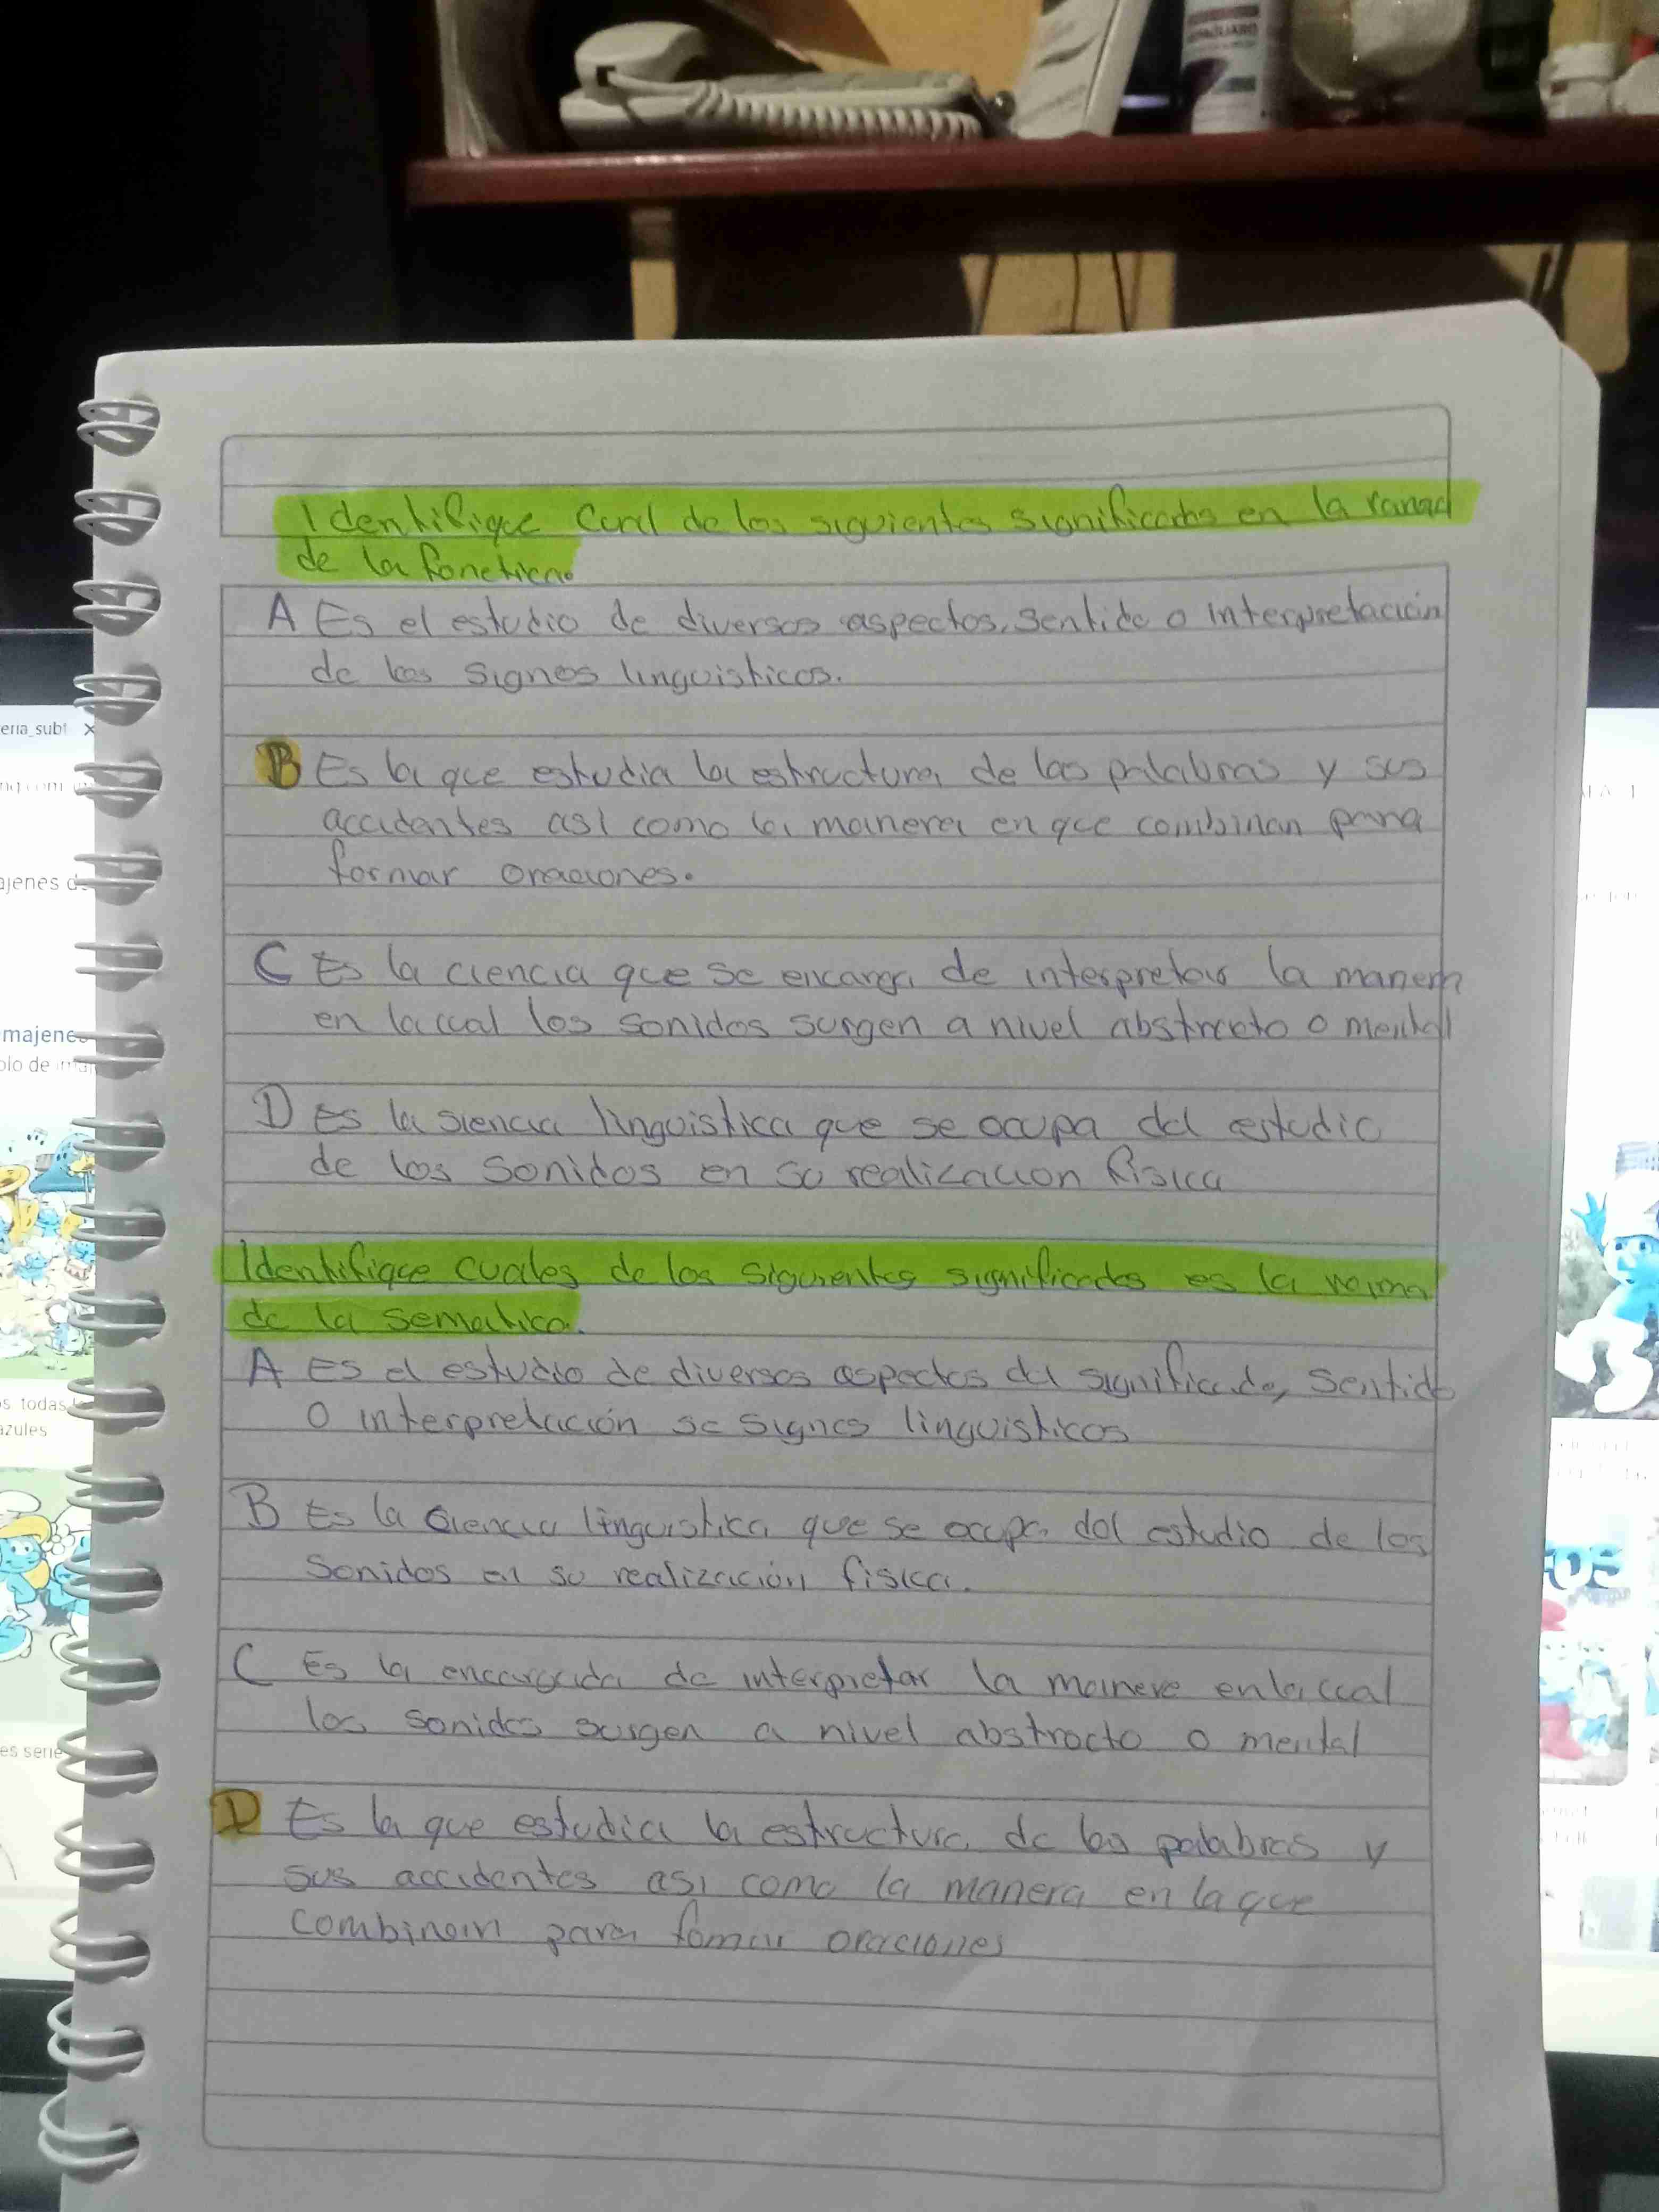 Identifique Cual de los siguientes significados en la ramad
de la fonetica.
A Es el estudio de diversos aspectos, sentido o interpretación
de los signos linguisticos.
B Es la que estudia la estructura de las palabras y sus
accidentes asi como la manera en que combinan para
formar oraciones.
C Es la ciencia que se encarga de interpretar la manera
en la cual los sonidos surgen a nivel abstracto o mental
D Es la siencia linguistica que se ocupa del estudio
de los sonidos en su realizacion fisica
Identifique cuales de los siguientes significados es la rama
de la sematica.
A Es el estudio de diversos aspectos del significado, sentido
o interpretación se signos linguisticos
B Es la ciencia linguistica que se ocupa del estudio de los
sonidos en su realización fisica.
C Es la encargada de interpretar la manere en la cual
los sonidos surgen a nivel abstracto o mental
D Es la que estudia la estructura de las palabras y
sus accidentes asi como la manera en la que
combinan para fomar oraciones
eria_subt
ajenes d
majene
olo de
s todas
azules
es serie